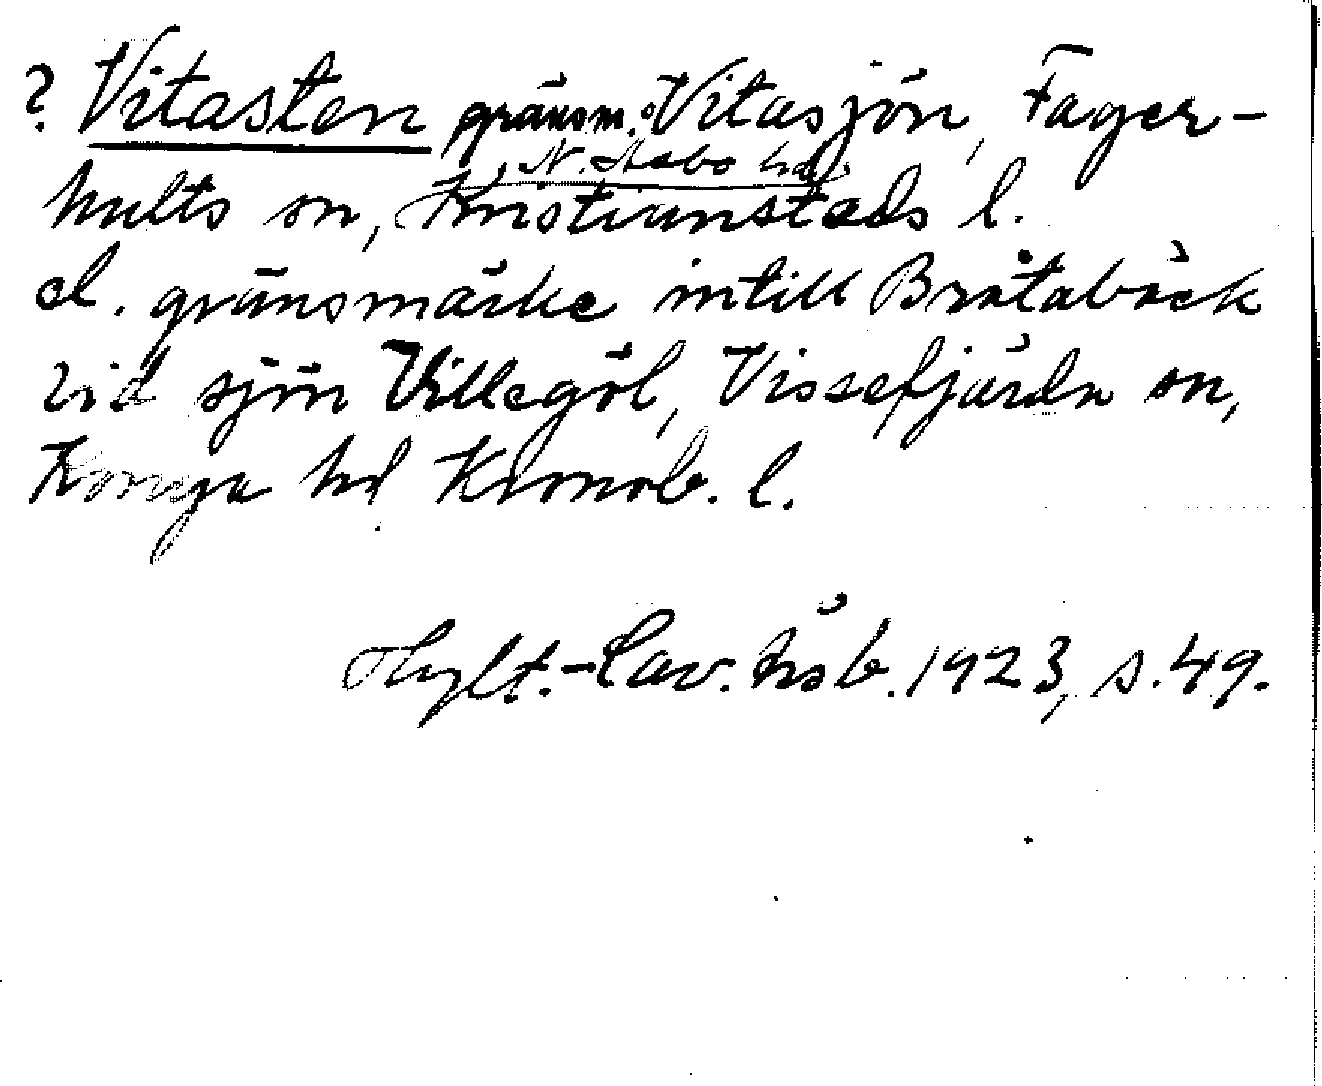 ? Vitasten gränsm. Vitasjön, Fager-
N. Åsbo hd,
hults sn, Kristianstads l.
el. gränsmärke intill Bråtabäck
vid sjön Villegöl, Vissefjärda sn,
Konga hd Kronob. l.
Hylt.-Cav. åsb. 1923, s. 49.